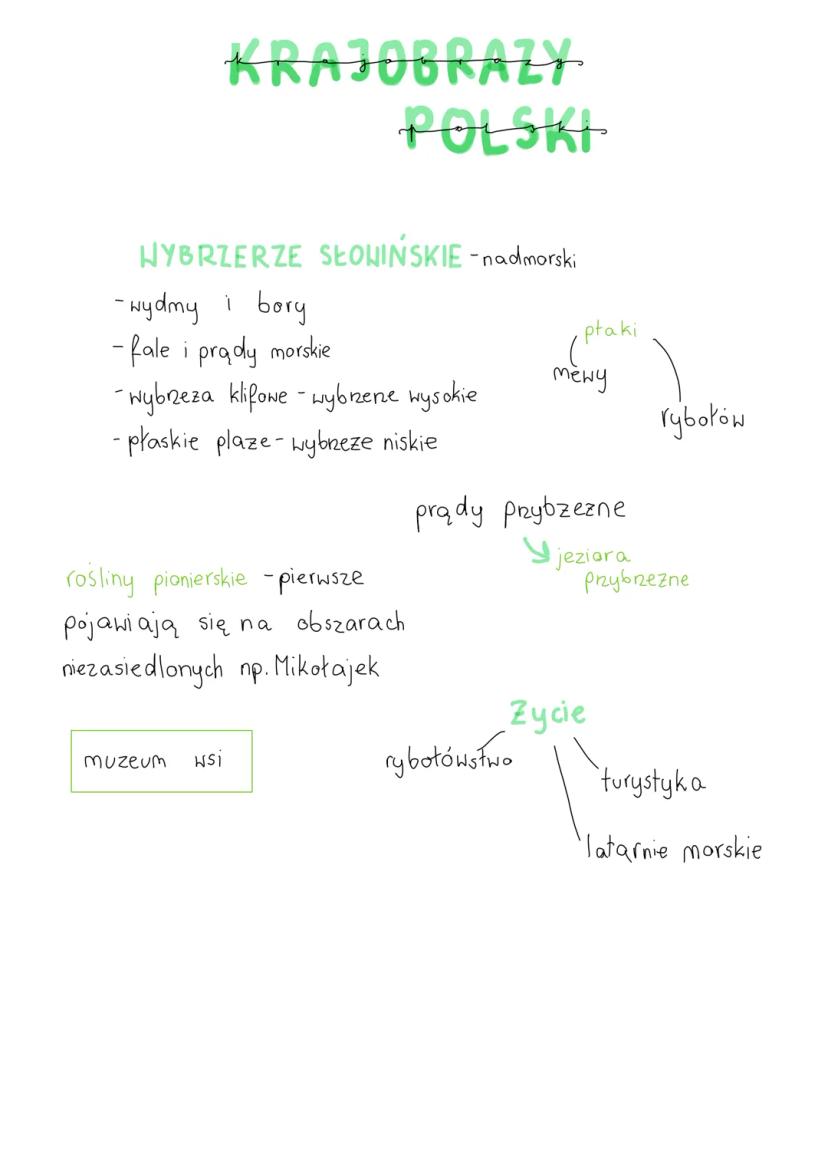 KRAJOBRAZY
krajobrazy
POLSKI
polski
WYBRZERZE SŁOWIŃSKIE - nadmorski
- wydmy i bory
- fale i prądy morskie
- wybrzeża klifowe - wybrzeże wysokie
- płaskie plaże - wybrzeże niskie
ptaki
mewy
rybołów
prądy przybżeżne
jeziora
przybrzeżne
rośliny pionierskie - pierwsze
pojawiają się na obszarach
niezasiedlonych np. Mikołajek
muzeum wsi
Życie
rybołówstwo
turystyka
latarnie morskie